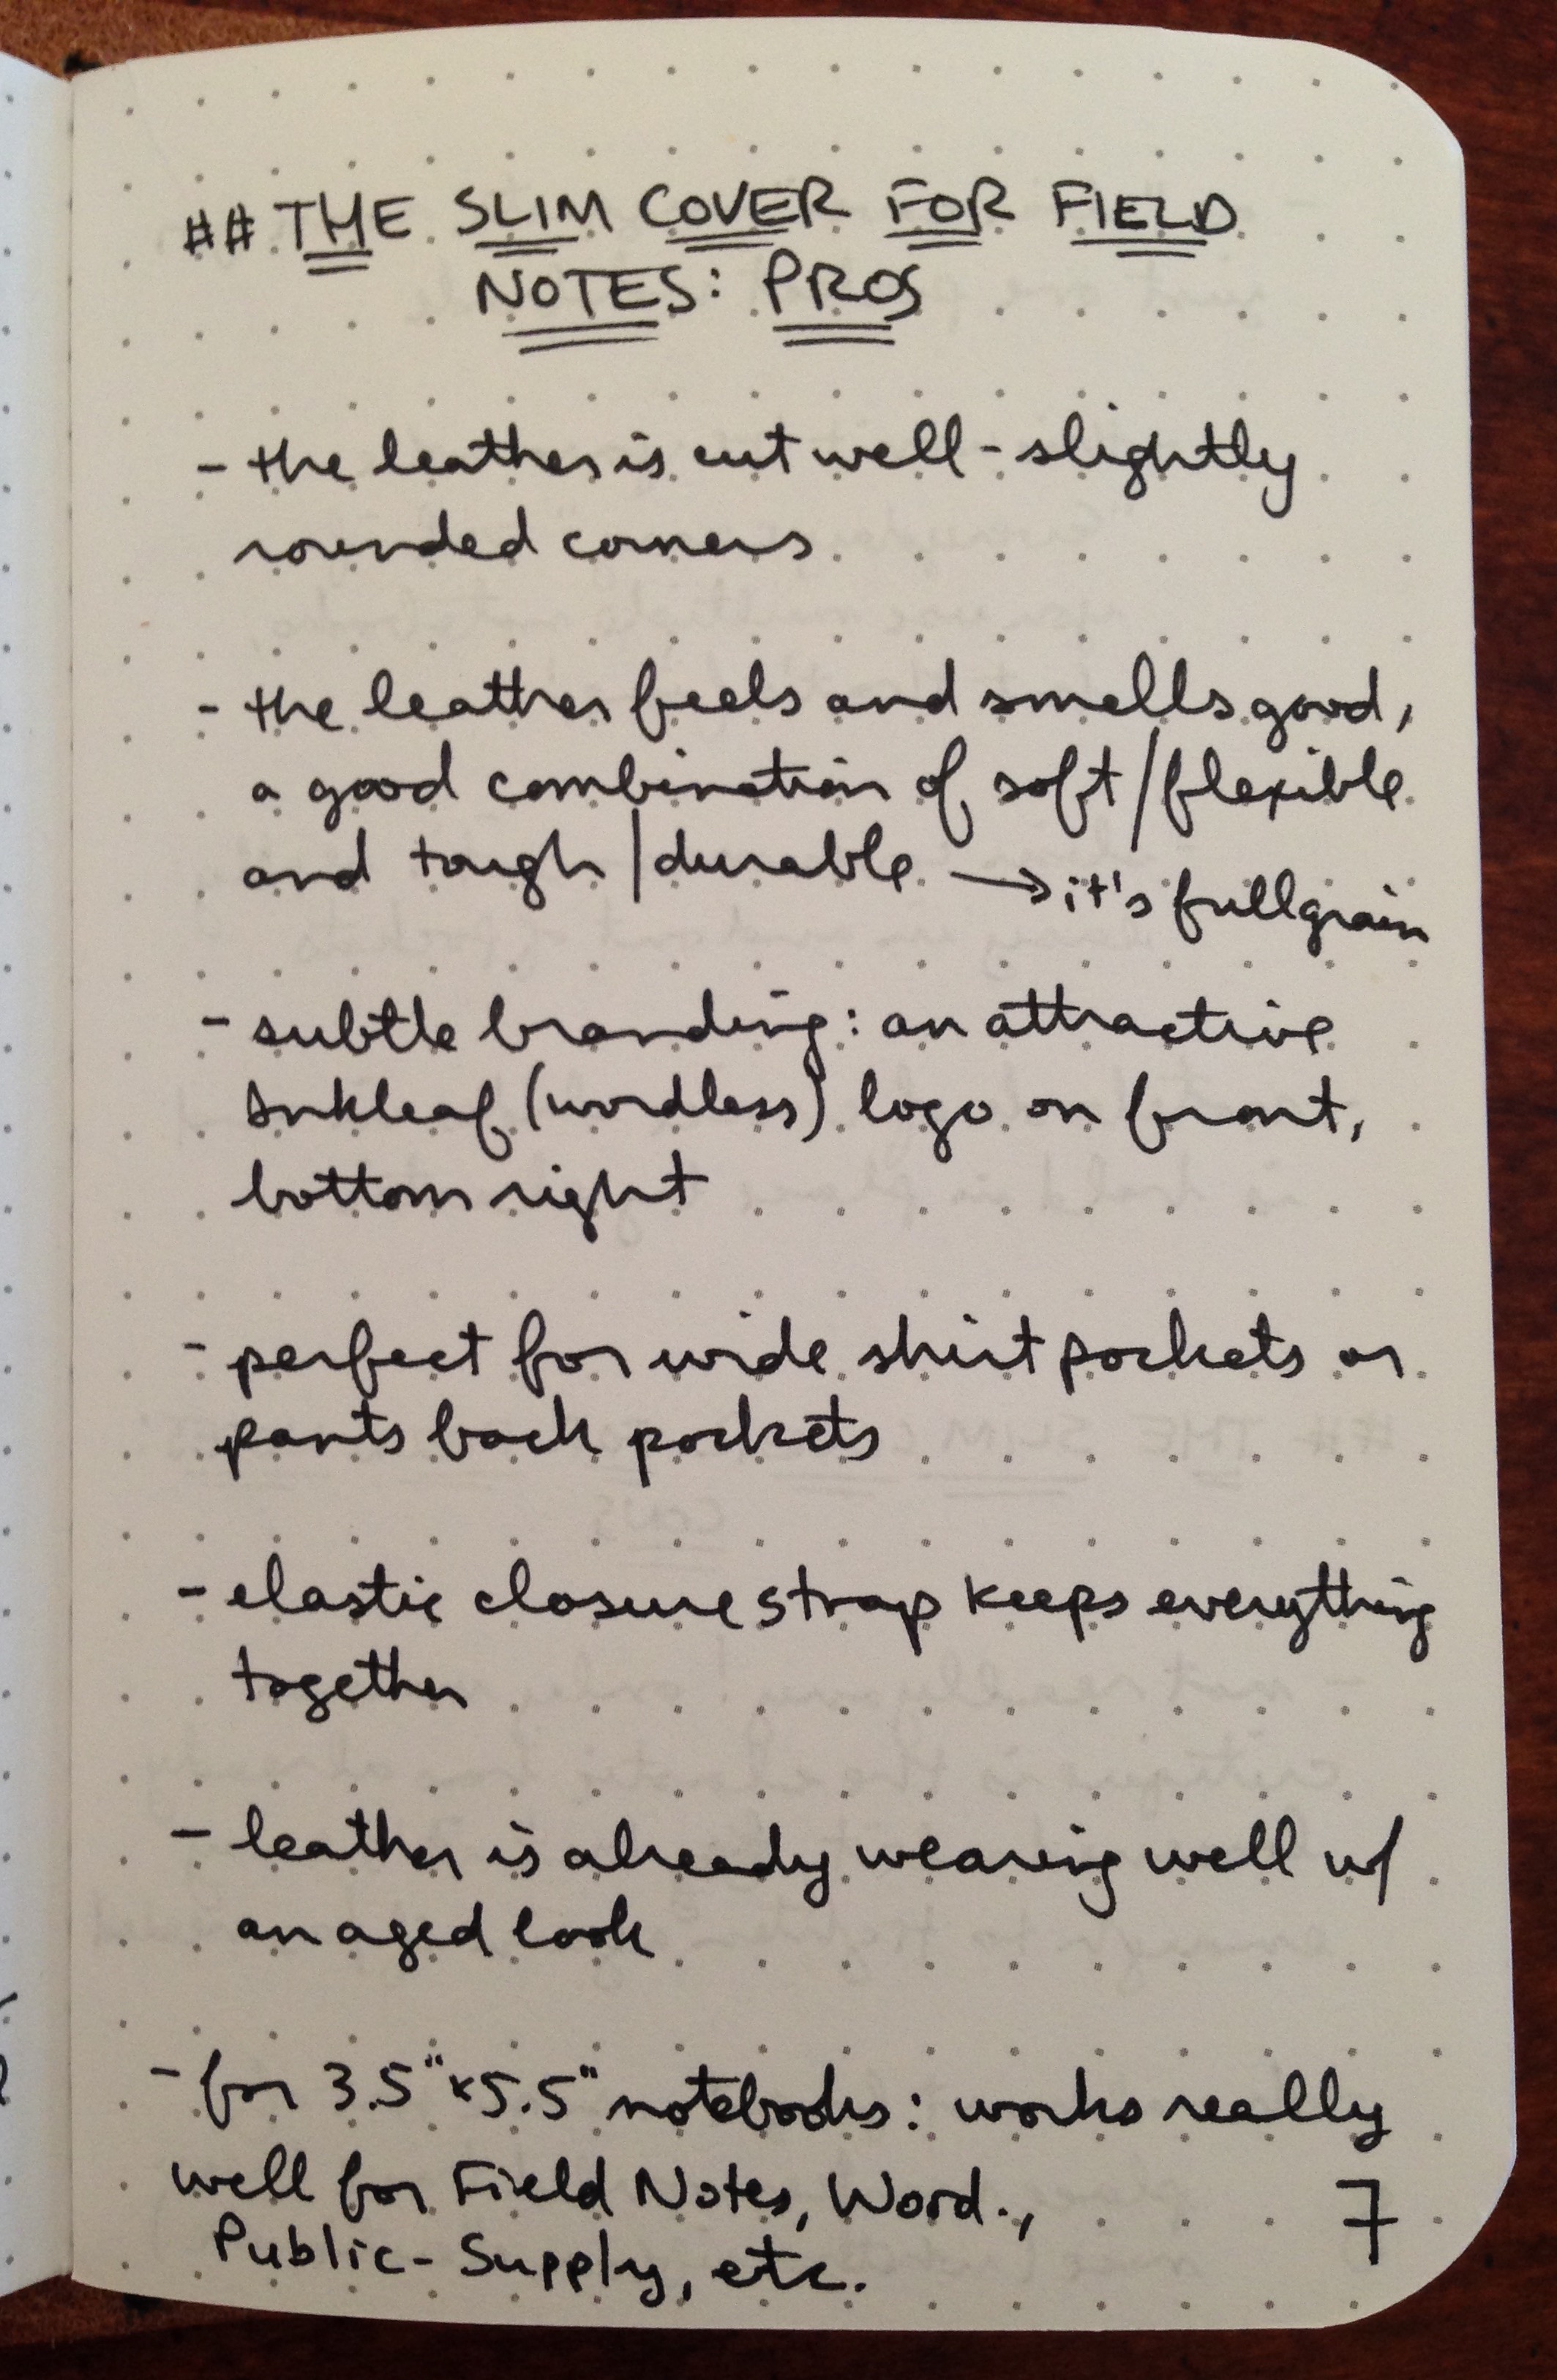 ## THE SLIM COVER FOR FIELD
NOTES: PROS
- the leather is cut well - slightly
rounded corners
- the leather feels and smells good,
a good combination of soft/flexible
and tough/durable → it's fullgrain
- subtle branding: an attractive
Inkleaf (wordless) logo on front,
bottom right
- perfect for wide shirt pockets or
pants back pockets
- elastic closure strap keeps everything
together
- leather is already wearing well w/
an aged look
- for 3.5"x5.5" notebooks: works really
well for Field Notes, Word.,
Public-Supply, etc.
7